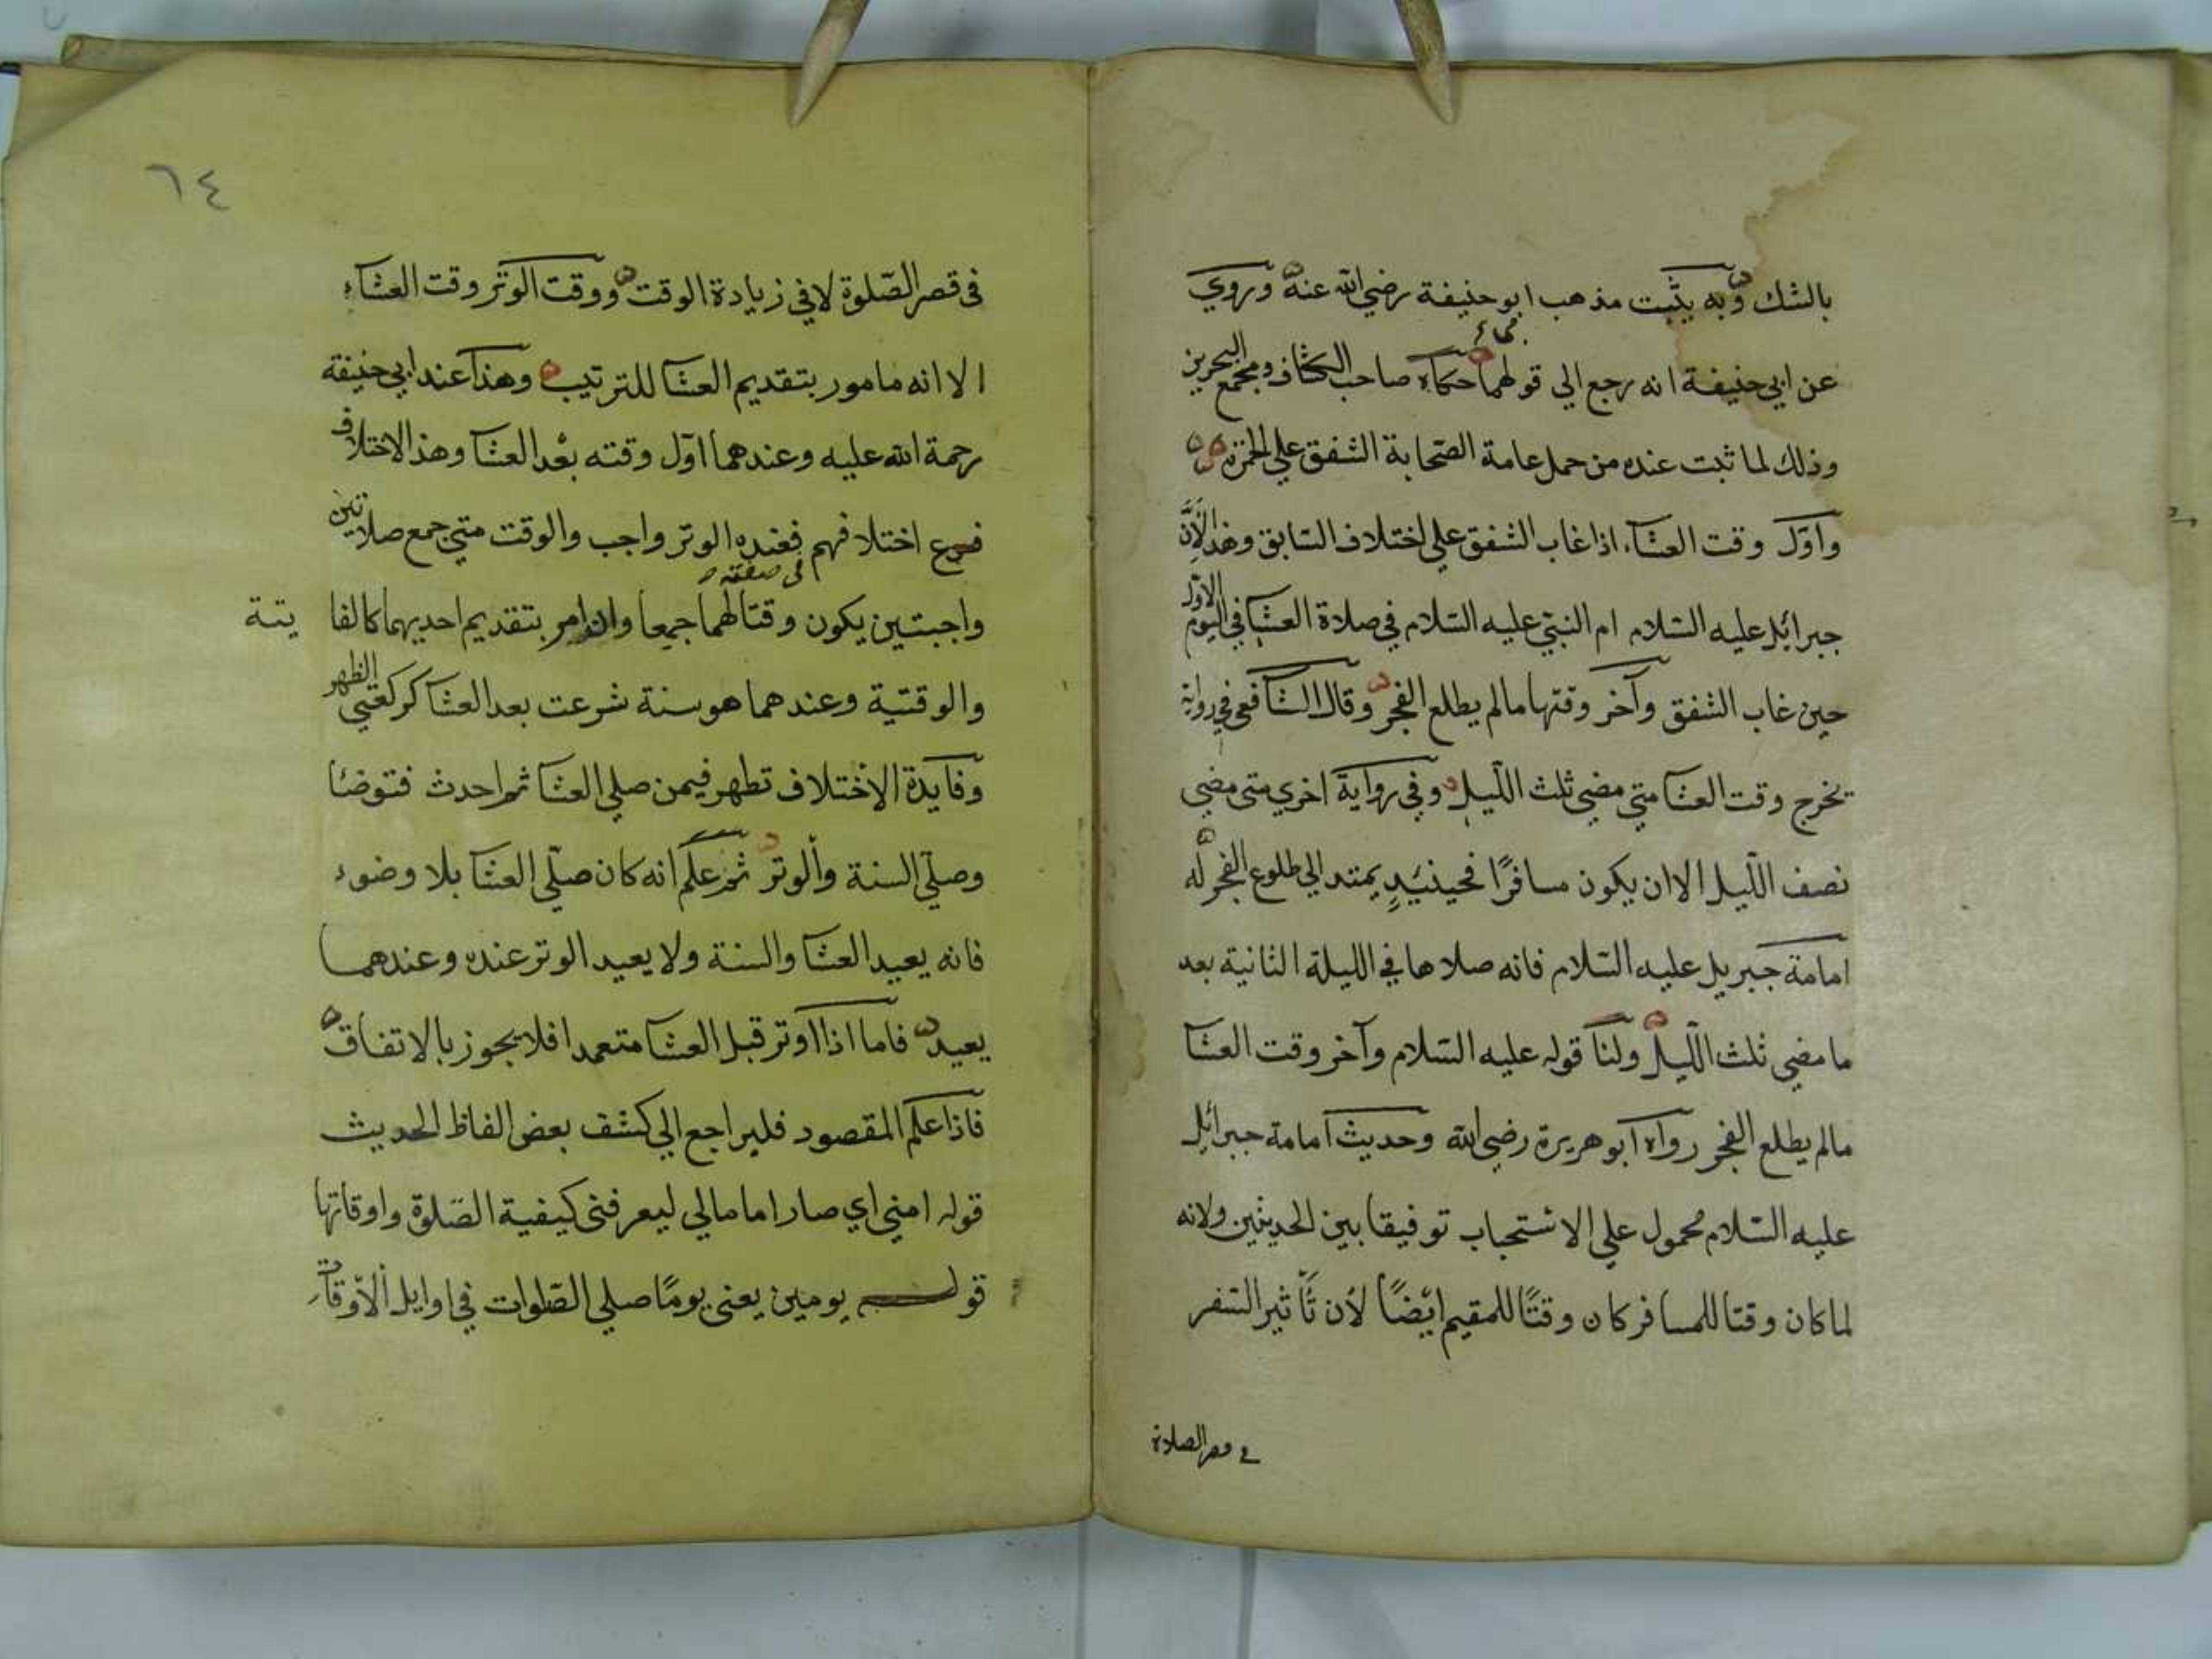 بالشك وبه يثبت مذهب ابو حنيفة رضي الله عنه وروي
عن ابي حنيفة انه رجع الي قولهما حكاه صاحب الكشاف ومجمع البحرين
وذلك لما ثبت عنده من حمل عامة الصحابة الشفق علي الحمرة
واول وقت العشاء اذا غاب الشفق علي اختلاف السابق وهذا لان
جبرائل عليه السلام ام النبي عليه السلام في صلاة العشا في اليوم الاول
حين غاب الشفق وآخر وقتها مالم يطلع الفجر وقال الشافعي في رواية
يخرج وقت العشا متي مضي ثلث الليل وفي رواية اخري متي مضي
نصف الليل الا ان يكون مسافرًا فحينيدٍ يمتد الي طلوع الفجر له
امامة جبريل عليه السلام فانه صلاها في الليلة الثانية بعد
ما مضي ثلث الليل ولنا قوله عليه السلام وآخر وقت العشا
مالم يطلع الفجر رواه ابو هريرة رضي الله وحديث امامة جبرائل
عليه السلام محمول علي الاستحباب توفيقا بين الحديثين ولانه
لما كان وقتا للمسافر كان وقتًا للمقيم ايضًا لأن تأثير السفر
في قصر الصلاة
٦٤
في قصر الصلوة لا في زيادة الوقت ووقت الوتر وقت العشاء
الا انه مامور بتقديم العشا للترتيب وهذا عند ابي حنيفة
رحمة الله عليه وعندهما اول وقته بعد العشا وهذا الاختلاف
فرع اختلافهم فعنده الوتر واجب والوقت متي جمع صلاتين
واجبتين يكون وقتا لهما جميعا وان امر بتقديم احديهما كالفا يتة
والوقتية وعندهما هو سنة شرعت بعد العشا كركعتي الظهر
وفايدة الاختلاف تطهر فيمن صلي العشا ثم احدث فتوضئا
وصلي السنة والوتر ثم علم انه كان صلي العشا بلا وضوء
فانه يعيد العشا والسنة ولا يعيد الوتر عنده وعندهما
يعيد فاما اذا اوتر قبل العشا متعمدا فلا يجوز بالاتفاق
فاذا علم المقصود فليراجع الي كشف بعض الفاظ الحديث
قوله امني اي صار اماما لي ليعرفني كيفية الصلوة واوقاتها
قوله يومين يعني يومًا صلي الصلوات في اوايل الاوقات